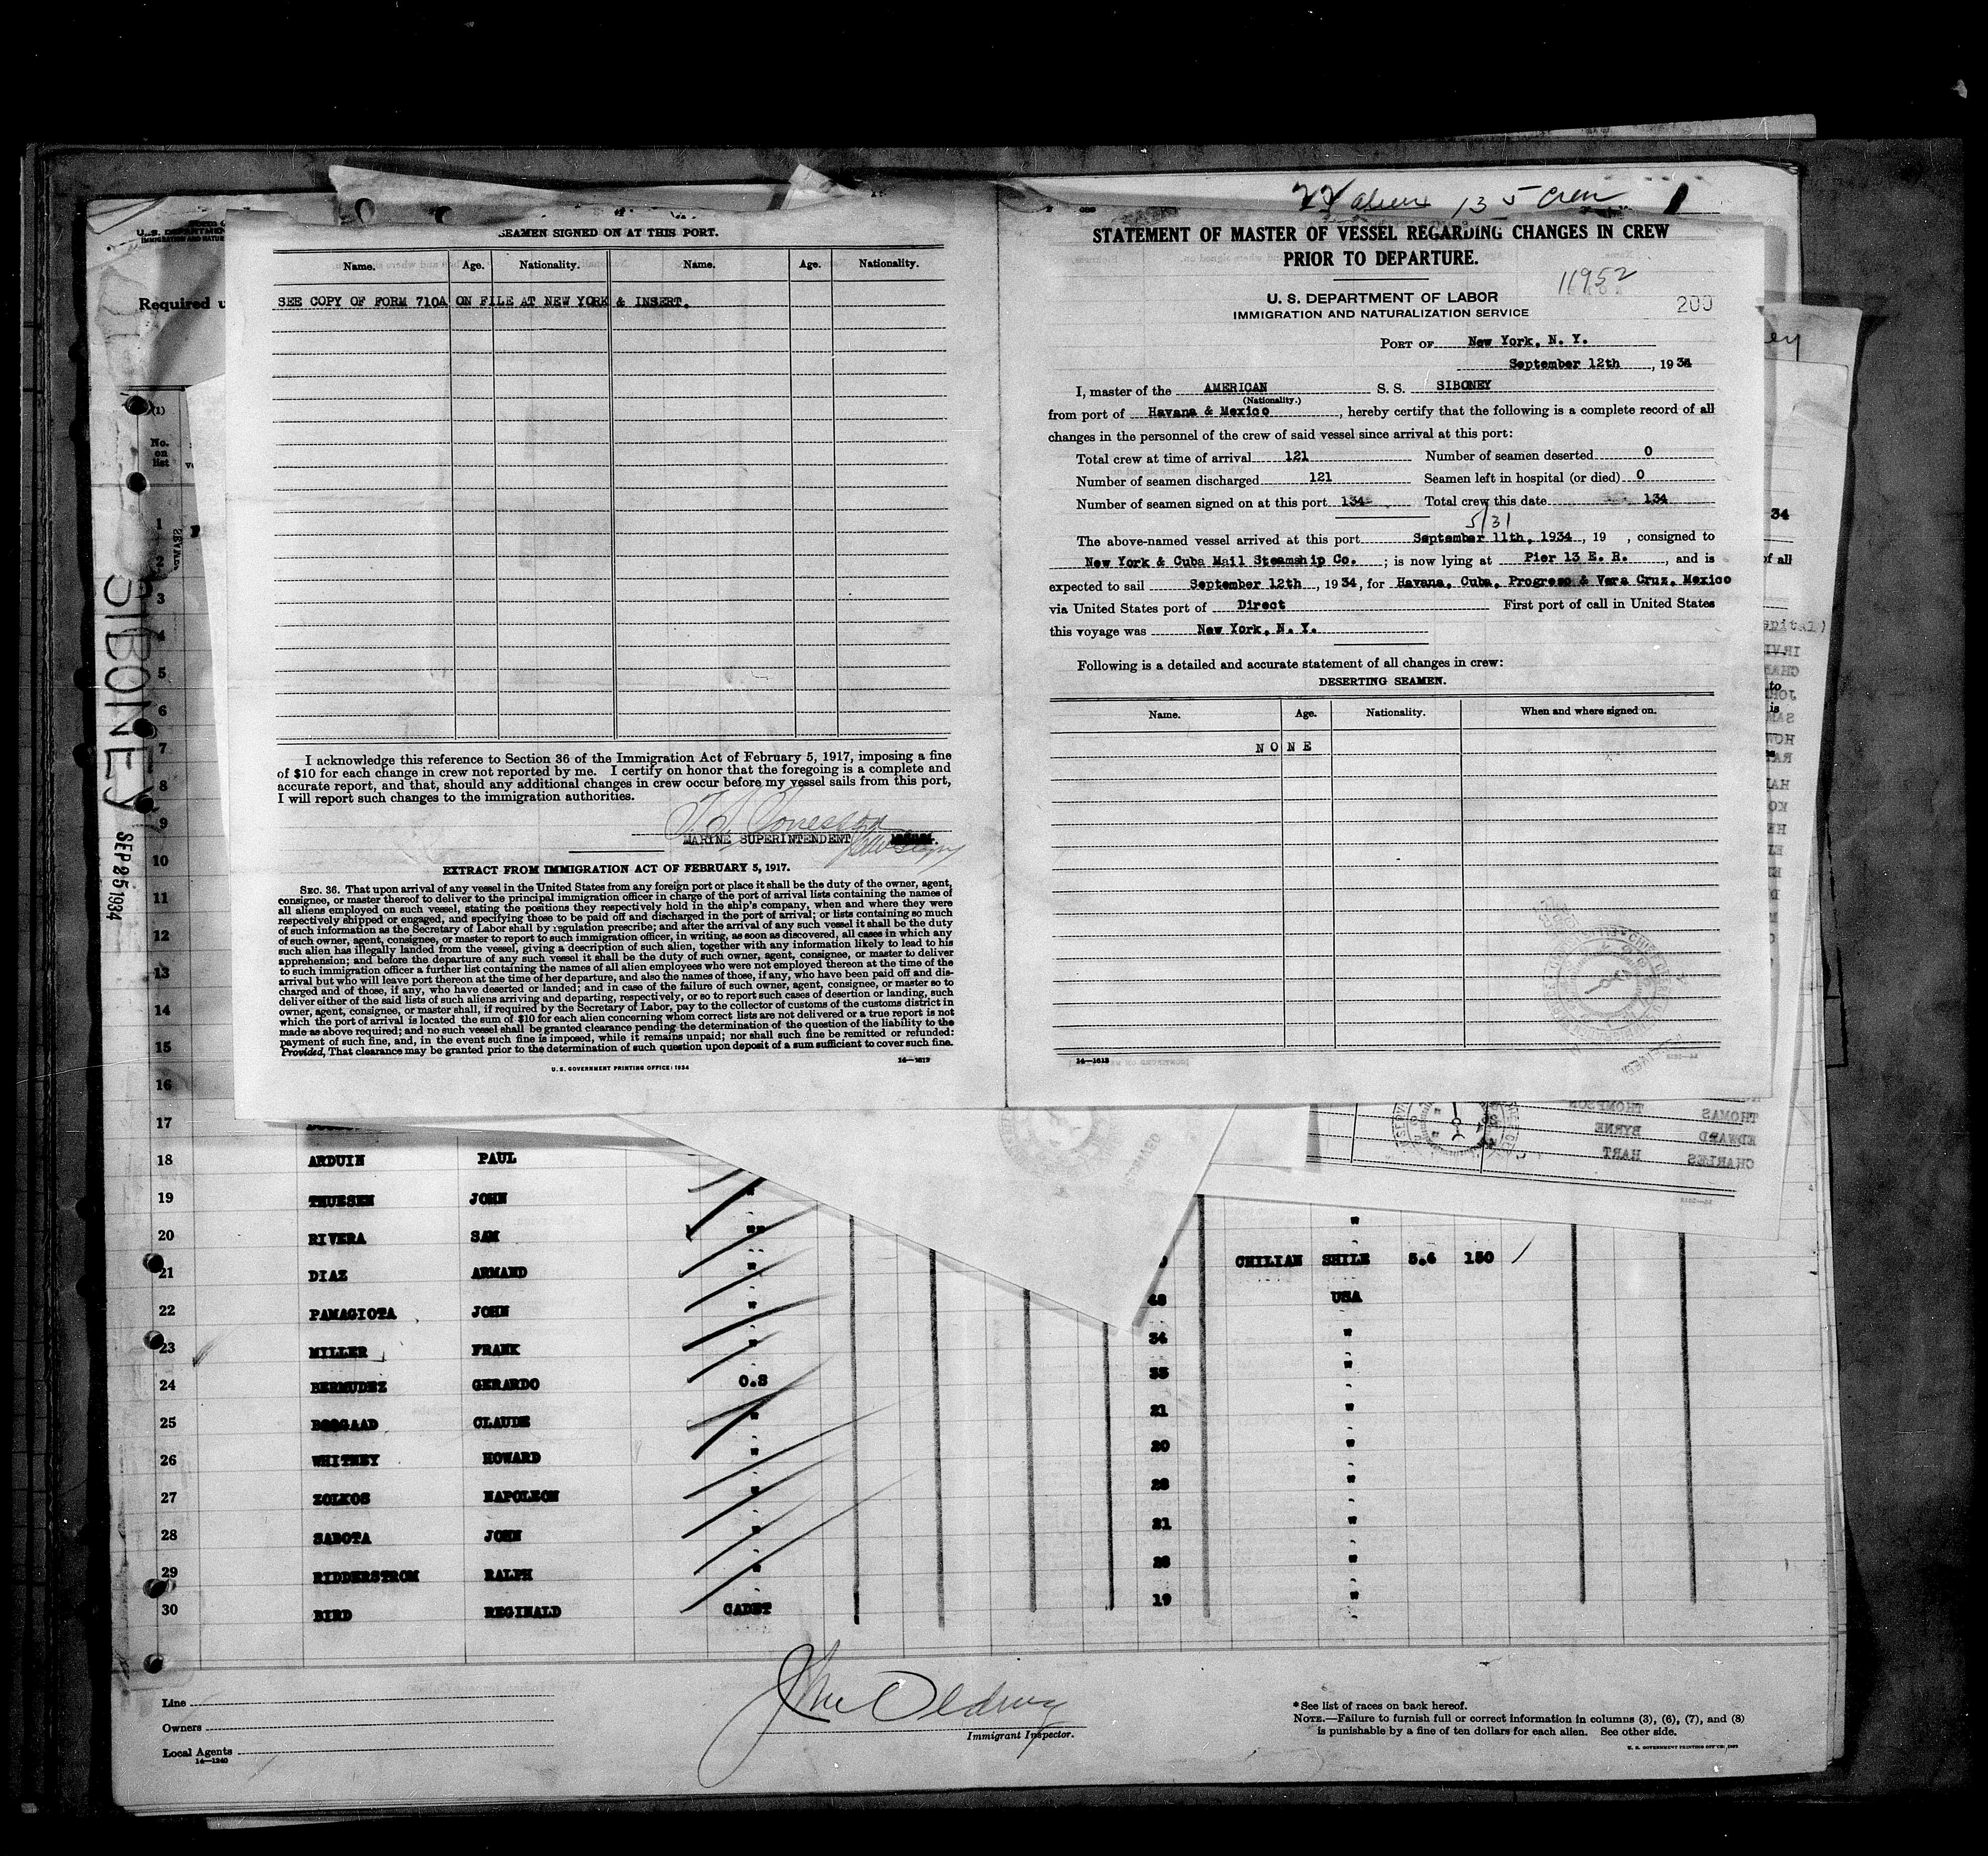 SEAMEN SIGNED ON AT THIS PORT.
Name. Age. Nationality. Name. Age. Nationality.
SEE COPY OF FORM 710A ON FILE AT NEW YORK & INSERT.
I acknowledge this reference to Section 36 of the Immigration Act of February 5, 1917, imposing a fine
of $10 for each change in crew not reported by me. I certify on honor that the foregoing is a complete and
accurate report, and that, should any additional changes in crew occur before my vessel sails from this port,
I will report such changes to the immigration authorities.
MARINE SUPERINTENDENT
EXTRACT FROM IMMIGRATION ACT OF FEBRUARY 5, 1917.
SEC. 36. That upon arrival of any vessel in the United States from any foreign port or place it shall be the duty of the owner, agent,
consignee, or master thereof to deliver to the principal immigration officer in charge of the port of arrival lists containing the names of
all aliens employed on such vessel, stating the positions they respectively hold in the ship's company, when and where they were
respectively shipped or engaged, and specifying those to be paid off and discharged in the port of arrival; or lists containing so much
of such information as the Secretary of Labor shall by regulation prescribe; and after the arrival of any such vessel it shall be the duty
of such owner, agent, consignee, or master to report to such immigration officer, in writing, as soon as discovered, all cases in which any
such alien has illegally landed from the vessel, giving a description of such alien, together with any information likely to lead to his
apprehension; and before the departure of any such vessel it shall be the duty of such owner, agent, consignee, or master to deliver
to such immigration officer a further list containing the names of all alien employees who were not employed thereon at the time of the
arrival but who will leave port thereon at the time of her departure, and also the names of those, if any, who have been paid off and dis-
charged and of those, if any, who have deserted or landed; and in case of the failure of such owner, agent, consignee, or master so to
deliver either of the said lists of such aliens arriving and departing, respectively, or so to report such cases of desertion or landing, such
owner, agent, consignee, or master shall, if required by the Secretary of Labor, pay to the collector of customs of the customs district in
which the port of arrival is located the sum of $10 for each alien concerning whom correct lists are not delivered or a true report is not
made as above required; and no such vessel shall be granted clearance pending the determination of the question of the liability to the
payment of such fine, and, in the event such fine is imposed, while it remains unpaid; nor shall such fine be remitted or refunded:
Provided, That clearance may be granted prior to the determination of such question upon deposit of a sum sufficient to cover such fine.
14—1613
U. S. GOVERNMENT PRINTING OFFICE: 1934
135 Crew
STATEMENT OF MASTER OF VESSEL REGARDING CHANGES IN CREW
PRIOR TO DEPARTURE.
11952
U. S. DEPARTMENT OF LABOR
IMMIGRATION AND NATURALIZATION SERVICE
200
PORT OF New York, N. Y.
September 12th, 1934
I, master of the AMERICAN S. S. SIBONEY
(Nationality.)
from port of Havana & Mexico, hereby certify that the following is a complete record of all
changes in the personnel of the crew of said vessel since arrival at this port:
Total crew at time of arrival 121 Number of seamen deserted 0
Number of seamen discharged 121 Seamen left in hospital (or died) 0
Number of seamen signed on at this port 134 Total crew this date 134
5/31
The above-named vessel arrived at this port September 11th, 1934, 19 , consigned to
New York & Cuba Mail Steamship Co. ; is now lying at Pier 13 E. R. , and is
expected to sail September 12th, 1934, for Havana, Cuba, Progreso & Vera Cruz, Mexico
via United States port of Direct First port of call in United States
this voyage was New York, N. Y.
Following is a detailed and accurate statement of all changes in crew:
DESERTING SEAMEN.
Name. Age. Nationality. When and where signed on.
NONE
14—1613
Required u
(1)
No.
on
list
SIBONEY
SEP 25 1934
1
2
3
4
5
6
7
8
9
10
11
12
13
14
15
16
17
18 ARDUIN PAUL
19 THUESEN JOHN "
20 RIVERA SAM " "
21 DIAZ ARMAND " CHILIAN SHILE 5.6 150
22 PANAGIOTA JOHN " 48 USA
23 MILLER FRANK " 34 "
24 BERMUDEZ GERARDO O.S 33 "
25 BOSGAAD CLAUDE " 21 "
26 WHITNEY HOWARD " 20 "
27 ZOLKOS NAPOLEON " 28 "
28 SABOTA JOHN " 21 "
29 RIDDERSTROM RALPH " 28 "
30 BIRD REGINALD CADET 19 "
THOMPSON THOMAS
BYRNE EDWARD
HART CHARLES
Line
Owners
Local Agents
14—1240
Immigrant Inspector.
*See list of races on back hereof.
NOTE.—Failure to furnish full or correct information in columns (3), (6), (7), and (8)
is punishable by a fine of ten dollars for each alien. See other side.